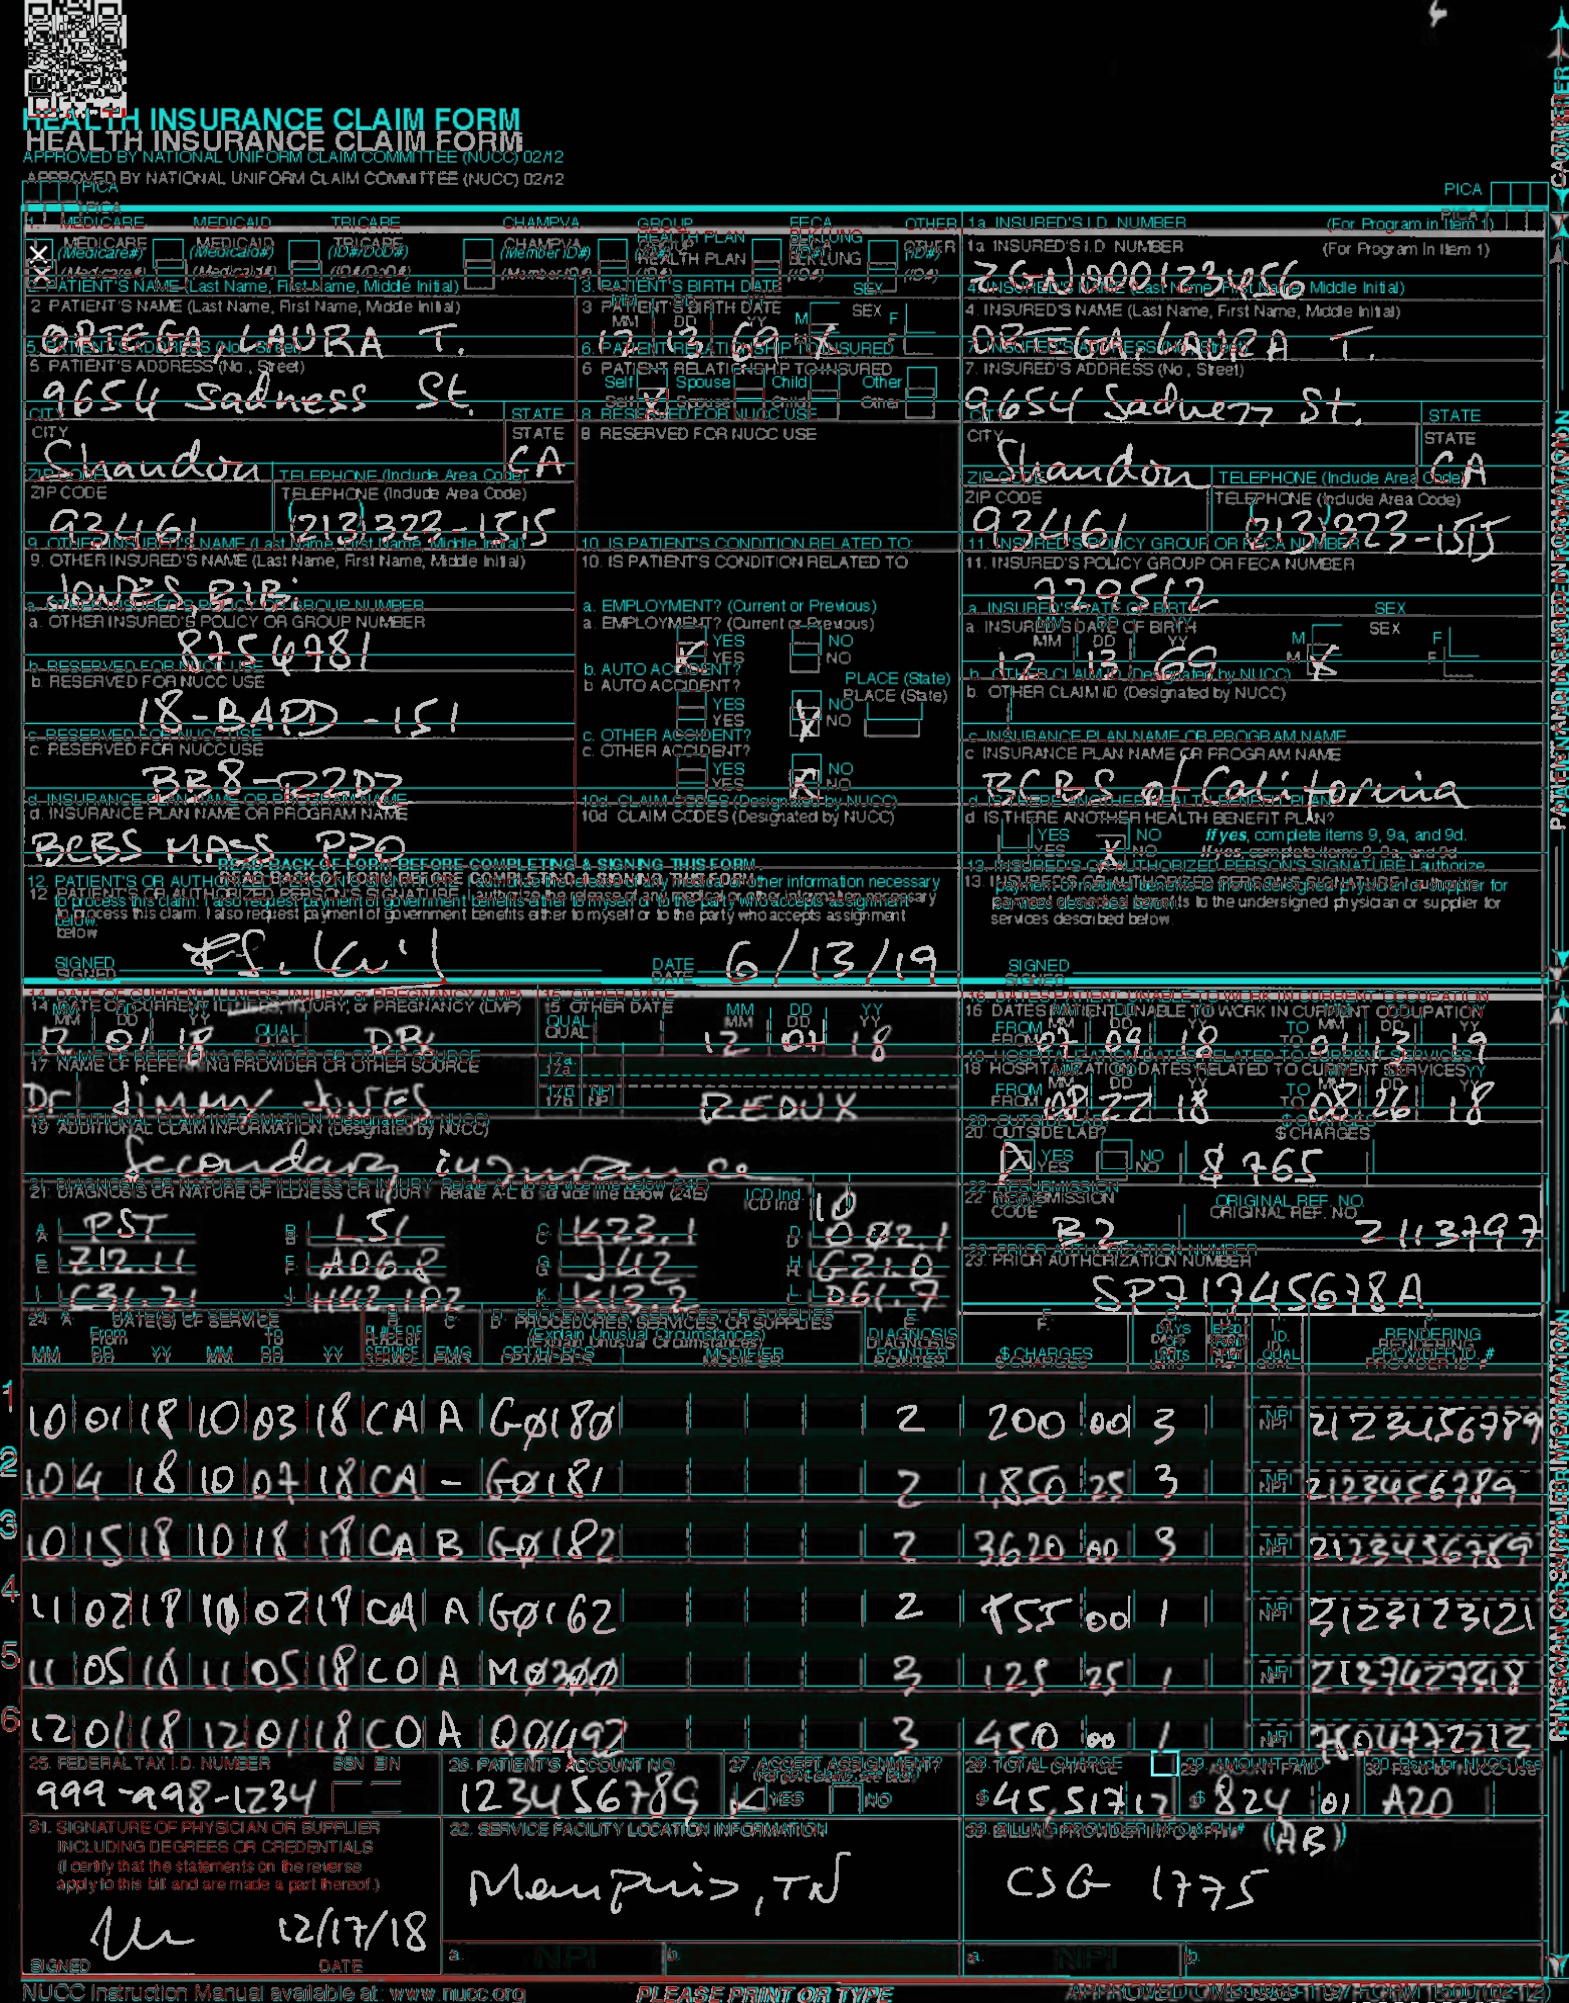 HEALTH INSURANCE CLAIM FORM
HEALTH INSURANCE CLAIM FORM
APPROVED BY NATIONAL UNIFORM CLAIM COMMITTEE (NUCC) 02/12
APPROVED BY NATIONAL UNIFORM CLAIM COMMITTEE (NUCC) 02/12
PICA PICA
CARRIER
1. MEDICARE MEDICAID TRICARE CHAMPVA GROUP HEALTH PLAN FECA BLK LUNG OTHER
(Medicare#) (Medicaid#) (ID#/DoD#) (Member ID#) (ID#) (ID#) (ID#)
X
1a. INSURED'S I.D. NUMBER (For Program in Item 1)
ZGN000123456
2. PATIENT'S NAME (Last Name, First Name, Middle Initial)
ORTEGA, LAURA T.
3. PATIENT'S BIRTH DATE SEX
MM DD YY M F
12 13 69 X
4. INSURED'S NAME (Last Name, First Name, Middle Initial)
ORTEGA, LAURA T.
5. PATIENT'S ADDRESS (No., Street)
9654 Sadness St.
6. PATIENT RELATIONSHIP TO INSURED
Self X Spouse Child Other
7. INSURED'S ADDRESS (No., Street)
9654 Sadness St.
CITY STATE
Shandon CA
8. RESERVED FOR NUCC USE
CITY STATE
Shandon CA
ZIP CODE TELEPHONE (Include Area Code)
93461 (213) 323-1515
ZIP CODE TELEPHONE (Include Area Code)
93461 (213) 323-1515
9. OTHER INSURED'S NAME (Last Name, First Name, Middle Initial)
JONES, BIBI
10. IS PATIENT'S CONDITION RELATED TO:
11. INSURED'S POLICY GROUP OR FECA NUMBER
729512
a. OTHER INSURED'S POLICY OR GROUP NUMBER
8754781
a. EMPLOYMENT? (Current or Previous)
X YES NO
a. INSURED'S DATE OF BIRTH SEX
MM DD YY M F
12 13 69 X
b. RESERVED FOR NUCC USE
18-BAPD-151
b. AUTO ACCIDENT? PLACE (State)
YES X NO
b. OTHER CLAIM ID (Designated by NUCC)
c. RESERVED FOR NUCC USE
BB8-R2D2
c. OTHER ACCIDENT?
YES X NO
c. INSURANCE PLAN NAME OR PROGRAM NAME
BCBS of California
d. INSURANCE PLAN NAME OR PROGRAM NAME
BCBS MASS PPO
10d. CLAIM CODES (Designated by NUCC)
d. IS THERE ANOTHER HEALTH BENEFIT PLAN?
YES X NO If yes, complete items 9, 9a, and 9d.
READ BACK OF FORM BEFORE COMPLETING & SIGNING THIS FORM.
12. PATIENT'S OR AUTHORIZED PERSON'S SIGNATURE I authorize the release of any medical or other information necessary
to process this claim. I also request payment of government benefits either to myself or to the party who accepts assignment
below.
SIGNED DATE 6/13/19
13. INSURED'S OR AUTHORIZED PERSON'S SIGNATURE I authorize
payment of medical benefits to the undersigned physician or supplier for
services described below.
SIGNED
PATIENT AND INSURED INFORMATION
14. DATE OF CURRENT ILLNESS, INJURY, or PREGNANCY (LMP)
MM DD YY QUAL.
12 01 18
15. OTHER DATE
QUAL. MM DD YY
12 07 18
16. DATES PATIENT UNABLE TO WORK IN CURRENT OCCUPATION
MM DD YY MM DD YY
FROM 07 09 18 TO 01 13 19
17. NAME OF REFERRING PROVIDER OR OTHER SOURCE
Dr Jimmy Jones
17a.
17b. NPI REDUX
18. HOSPITALIZATION DATES RELATED TO CURRENT SERVICES
MM DD YY MM DD YY
FROM 08 22 18 TO 08 26 18
19. ADDITIONAL CLAIM INFORMATION (Designated by NUCC)
Secondary insurance
20. OUTSIDE LAB? $ CHARGES
X YES NO $ 765
21. DIAGNOSIS OR NATURE OF ILLNESS OR INJURY Relate A-L to service line below (24E) ICD Ind. 10
A. PST B. L51 C. K23.1 D. D02.1
E. Z12.11 F. A06.2 G. J42 H. G21.0
I. C31.21 J. H42.102 K. K13.2 L. D61.9
22. RESUBMISSION CODE ORIGINAL REF. NO.
B2 2113797
23. PRIOR AUTHORIZATION NUMBER
SP71745678A
24. A. DATE(S) OF SERVICE B. C. D. PROCEDURES, SERVICES, OR SUPPLIES E. F. G. H. I. J.
From To PLACE OF SERVICE EMG (Explain Unusual Circumstances) DIAGNOSIS POINTER $ CHARGES DAYS OR UNITS ID. QUAL. RENDERING PROVIDER ID. #
MM DD YY MM DD YY CPT/HCPCS MODIFIER
1 10 01 18 10 03 18 CA A G0180 2 200 00 3 NPI 2123456789
2 10 4 18 10 07 18 CA - G0181 2 1,850 25 3 NPI 2123456789
3 10 15 18 10 18 18 CA B G0182 2 3620 00 3 NPI 2123456789
4 11 02 18 02 18 CA A G0162 2 855 00 1 NPI 3123123121
5 11 05 18 11 05 18 CO A M0300 3 125 25 1 NPI 2137627218
6 12 01 18 12 01 18 CO A Q0492 3 450 00 1 NPI
25. FEDERAL TAX I.D. NUMBER SSN EIN
999-998-1234
26. PATIENT'S ACCOUNT NO.
123456789
27. ACCEPT ASSIGNMENT?
(For govt. claims, see back)
X YES NO
28. TOTAL CHARGE
$ 45,517 12
29. AMOUNT PAID
$ 824 01
30. Rsvd for NUCC Use
A20
31. SIGNATURE OF PHYSICIAN OR SUPPLIER
INCLUDING DEGREES OR CREDENTIALS
(I certify that the statements on the reverse
apply to this bill and are made a part thereof.)
12/17/18
SIGNED DATE
32. SERVICE FACILITY LOCATION INFORMATION
Memphis, TN
a. NPI b.
33. BILLING PROVIDER INFO & PH # (AB)
CSG 1775
a. NPI b.
PHYSICIAN OR SUPPLIER INFORMATION
NUCC Instruction Manual available at: www.nucc.org
PLEASE PRINT OR TYPE
APPROVED OMB-0938-1197 FORM 1500 (02-12)